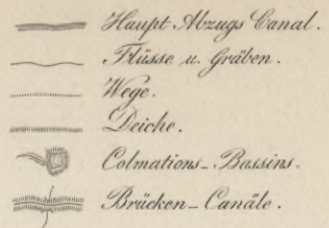 Haupt Abzugs Canal.
Flüsse u. Gräben.
Wege.
Deiche.
Colmations-Bassins.
Brücken-Canäle.